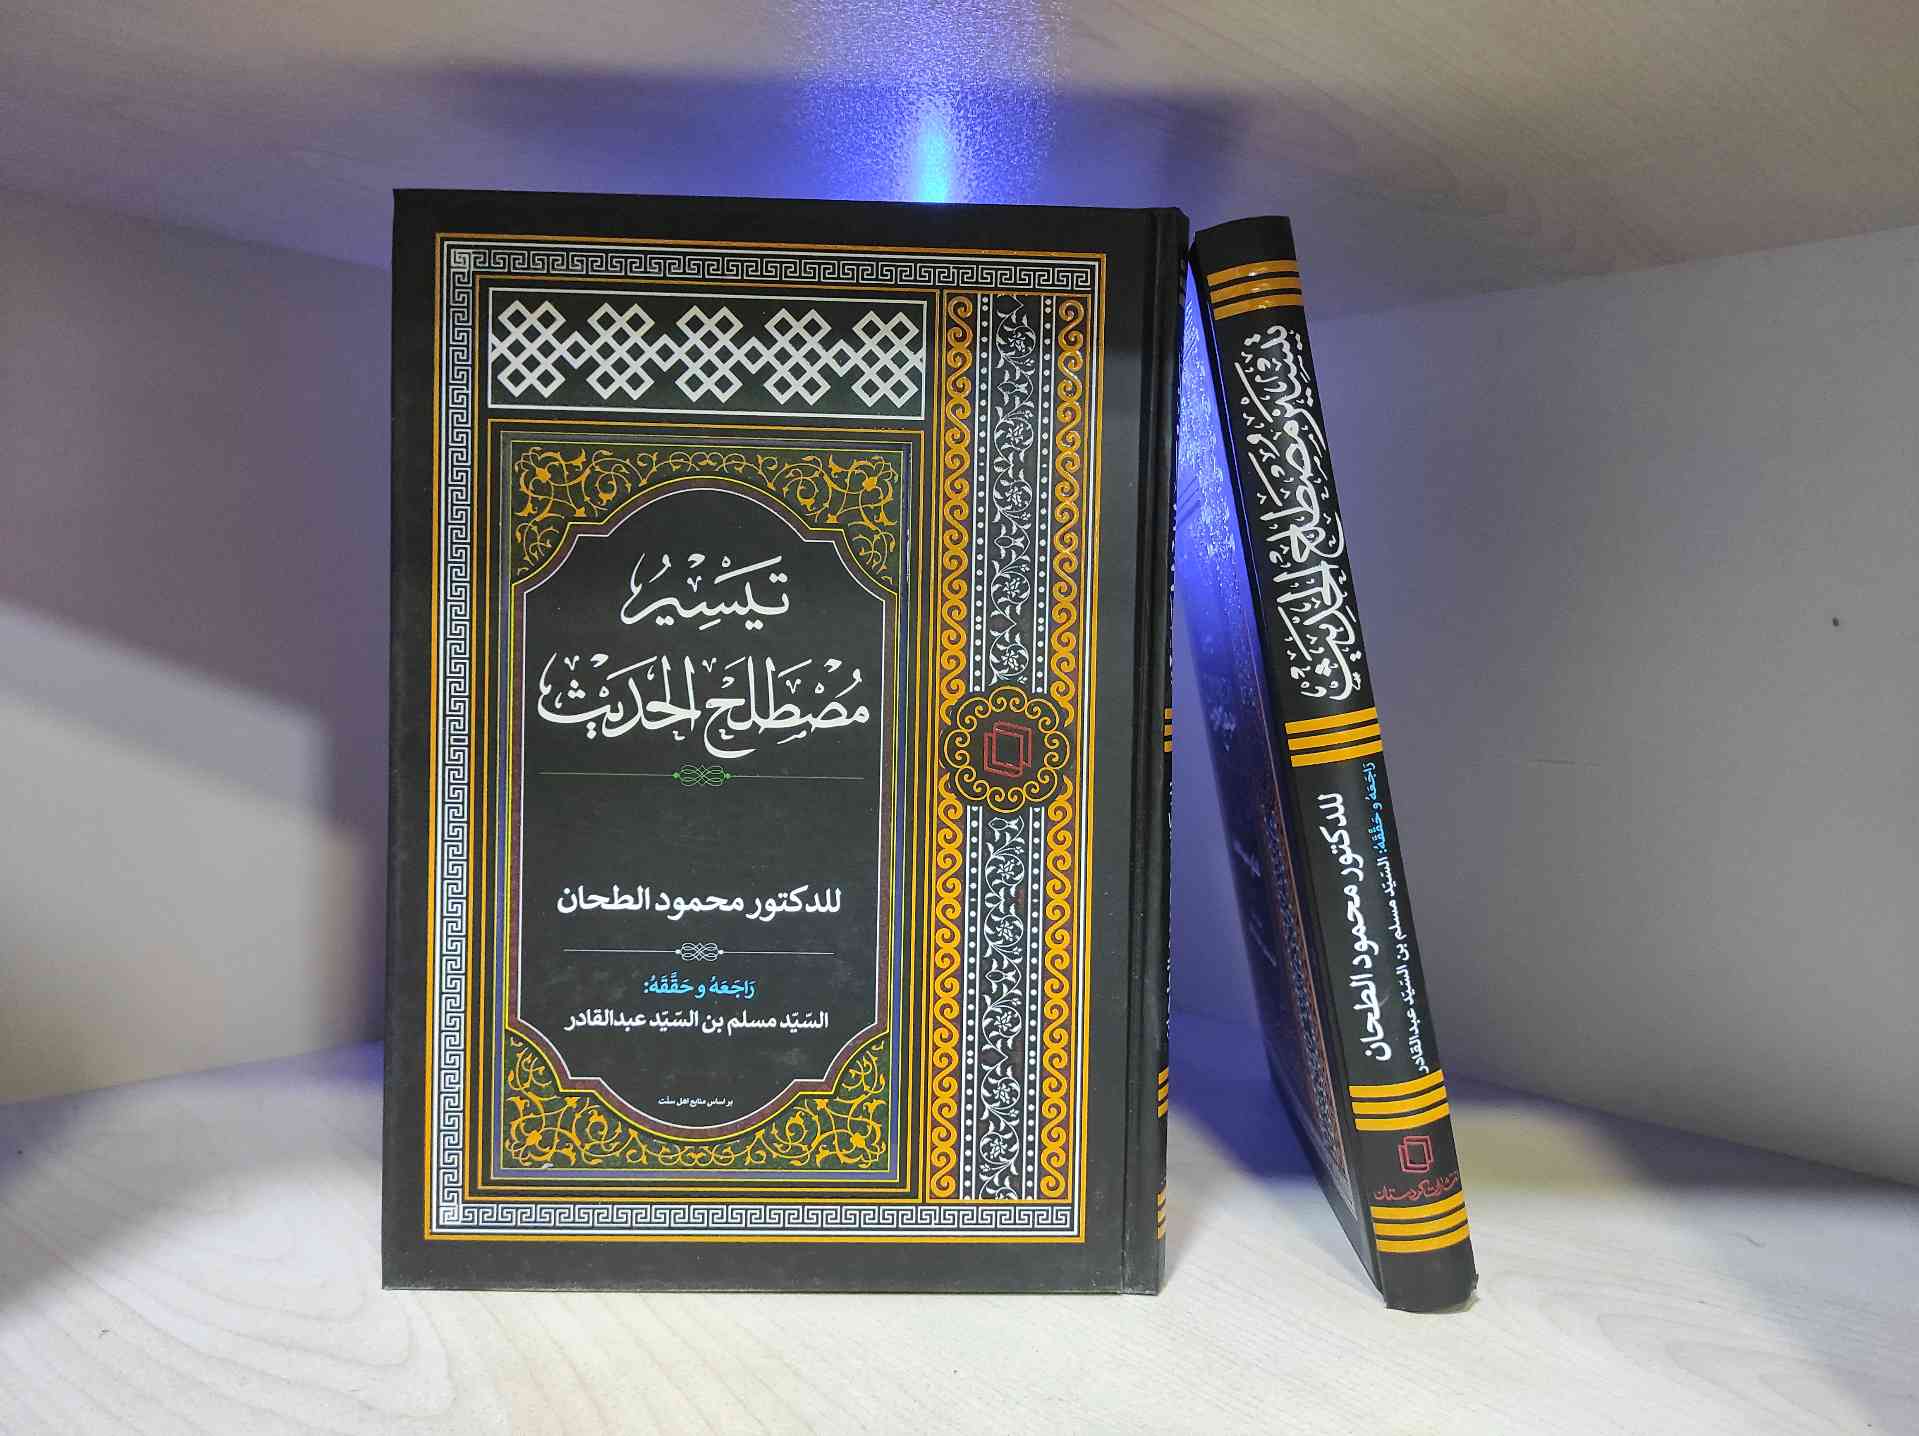 تَيْسِيْرُ
مُصْطَلَحَ الْحَدَيْث
للدكتور محمود الطحان
رَاجَعَهُ و حَقَّقَهُ:
السَّيّد مسلم بن السَّيّد عبدالقادر
بر اساس منابع اهل سنّت
تيسير مصطلح الحديث
للدكتور محمود الطحان
رَاجَعَهُ و حَقَّقَهُ: السَّيّد مسلم بن السَّيّد عبدالقادر
انتشارات کردستان